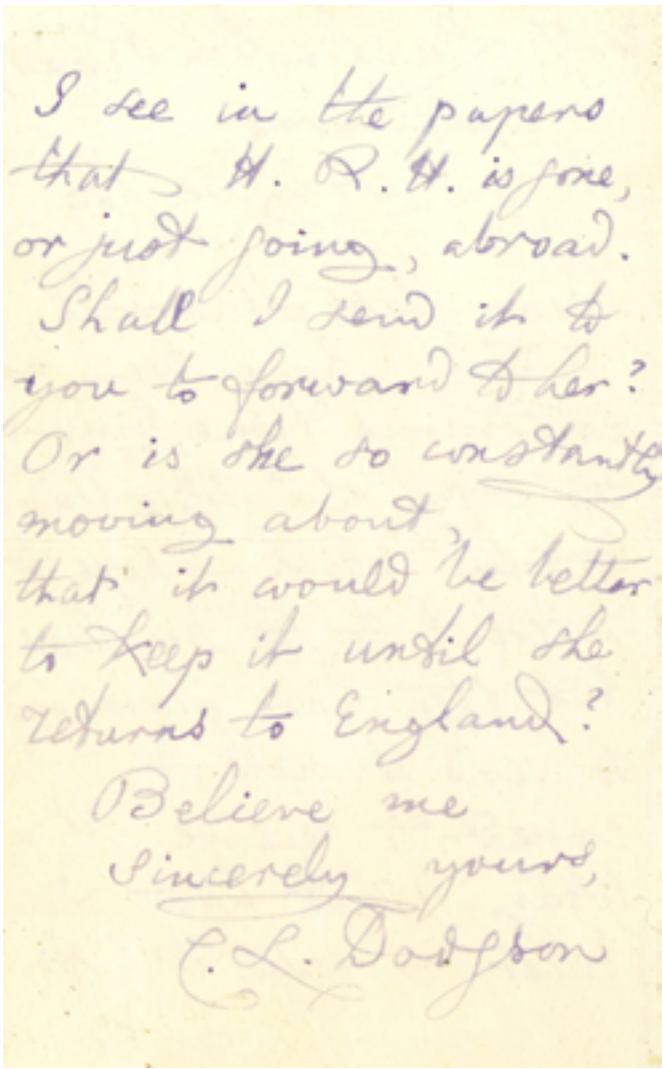 I see in the papers
that H. R. H. is gone,
or just going, abroad.
Shall I send it to
you to forward to her?
Or is she so constantly
moving about,
that it would be better
to keep it until she
returns to England?
Believe me
sincerely yours,
C. L. Dodgson